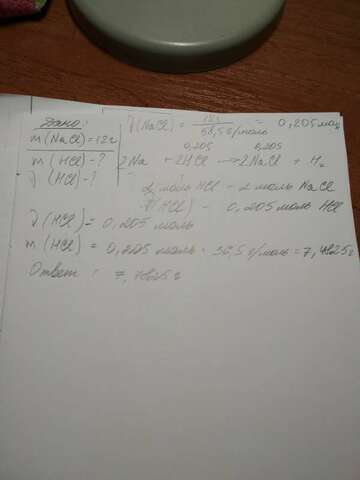 Дано:
m(NaCl)=12г
m(HCl)-?
ν(HCl)-?
ν(NaCl) = 12г / 58,5г/моль = 0,205моль
0,205 0,205
2Na + 2HCl → 2NaCl + H₂
2 моль HCl - 2 моль NaCl
ν(HCl) - 0,205 моль HCl
ν(HCl) = 0,205 моль
m(HCl) = 0,205 моль · 36,5 г/моль = 7,4825г
Ответ: 7,4825г